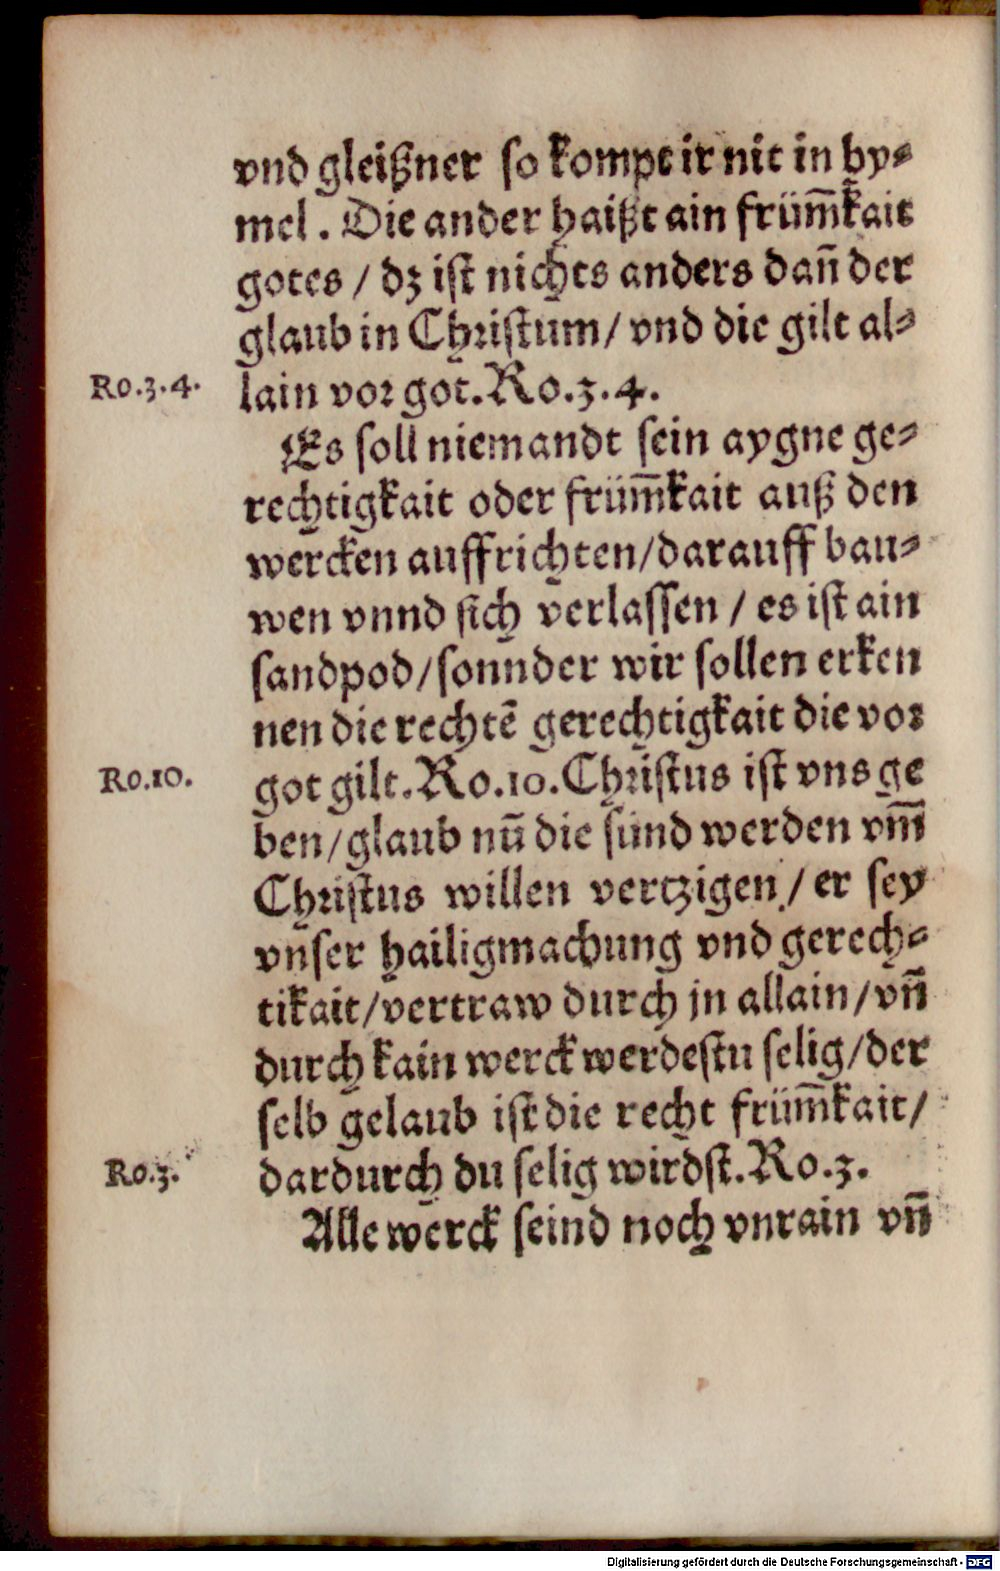 vnd gleißner so kompt ir nit in hy⸗
mel . Die ander haißt ain früm̄kait
gotes / dz ist nichts anders dan̄ der
glaub in Christum / vnd die gilt al⸗
Ro.3.4. lain vor got. Ro.3.4.
Es soll niemandt sein aygne ge⸗
rechtigkait oder früm̄kait auß den
wercken auffrichten / darauff bau⸗
wen vnnd sich verlassen / es ist ain
sandpod / sonnder wir sollen erken
nen die rechtē gerechtigkait die vor
Ro.10. got gilt. Ro.10. Christus ist vns ge
ben / glaub nū die sünd werden vm̄
Christus willen vertzigen / er sey
vnser hailigmachung vnd gerech⸗
tikait / vertraw durch jn allain / vn̄
durch kain werck werdestu selig / der
selb gelaub ist die recht früm̄kait /
Ro.3. dardurch du selig wirdst. Ro.3.
Alle werck seind noch vnrain vn̄
Digitalisierung gefördert durch die Deutsche Forschungsgemeinschaft - DFG